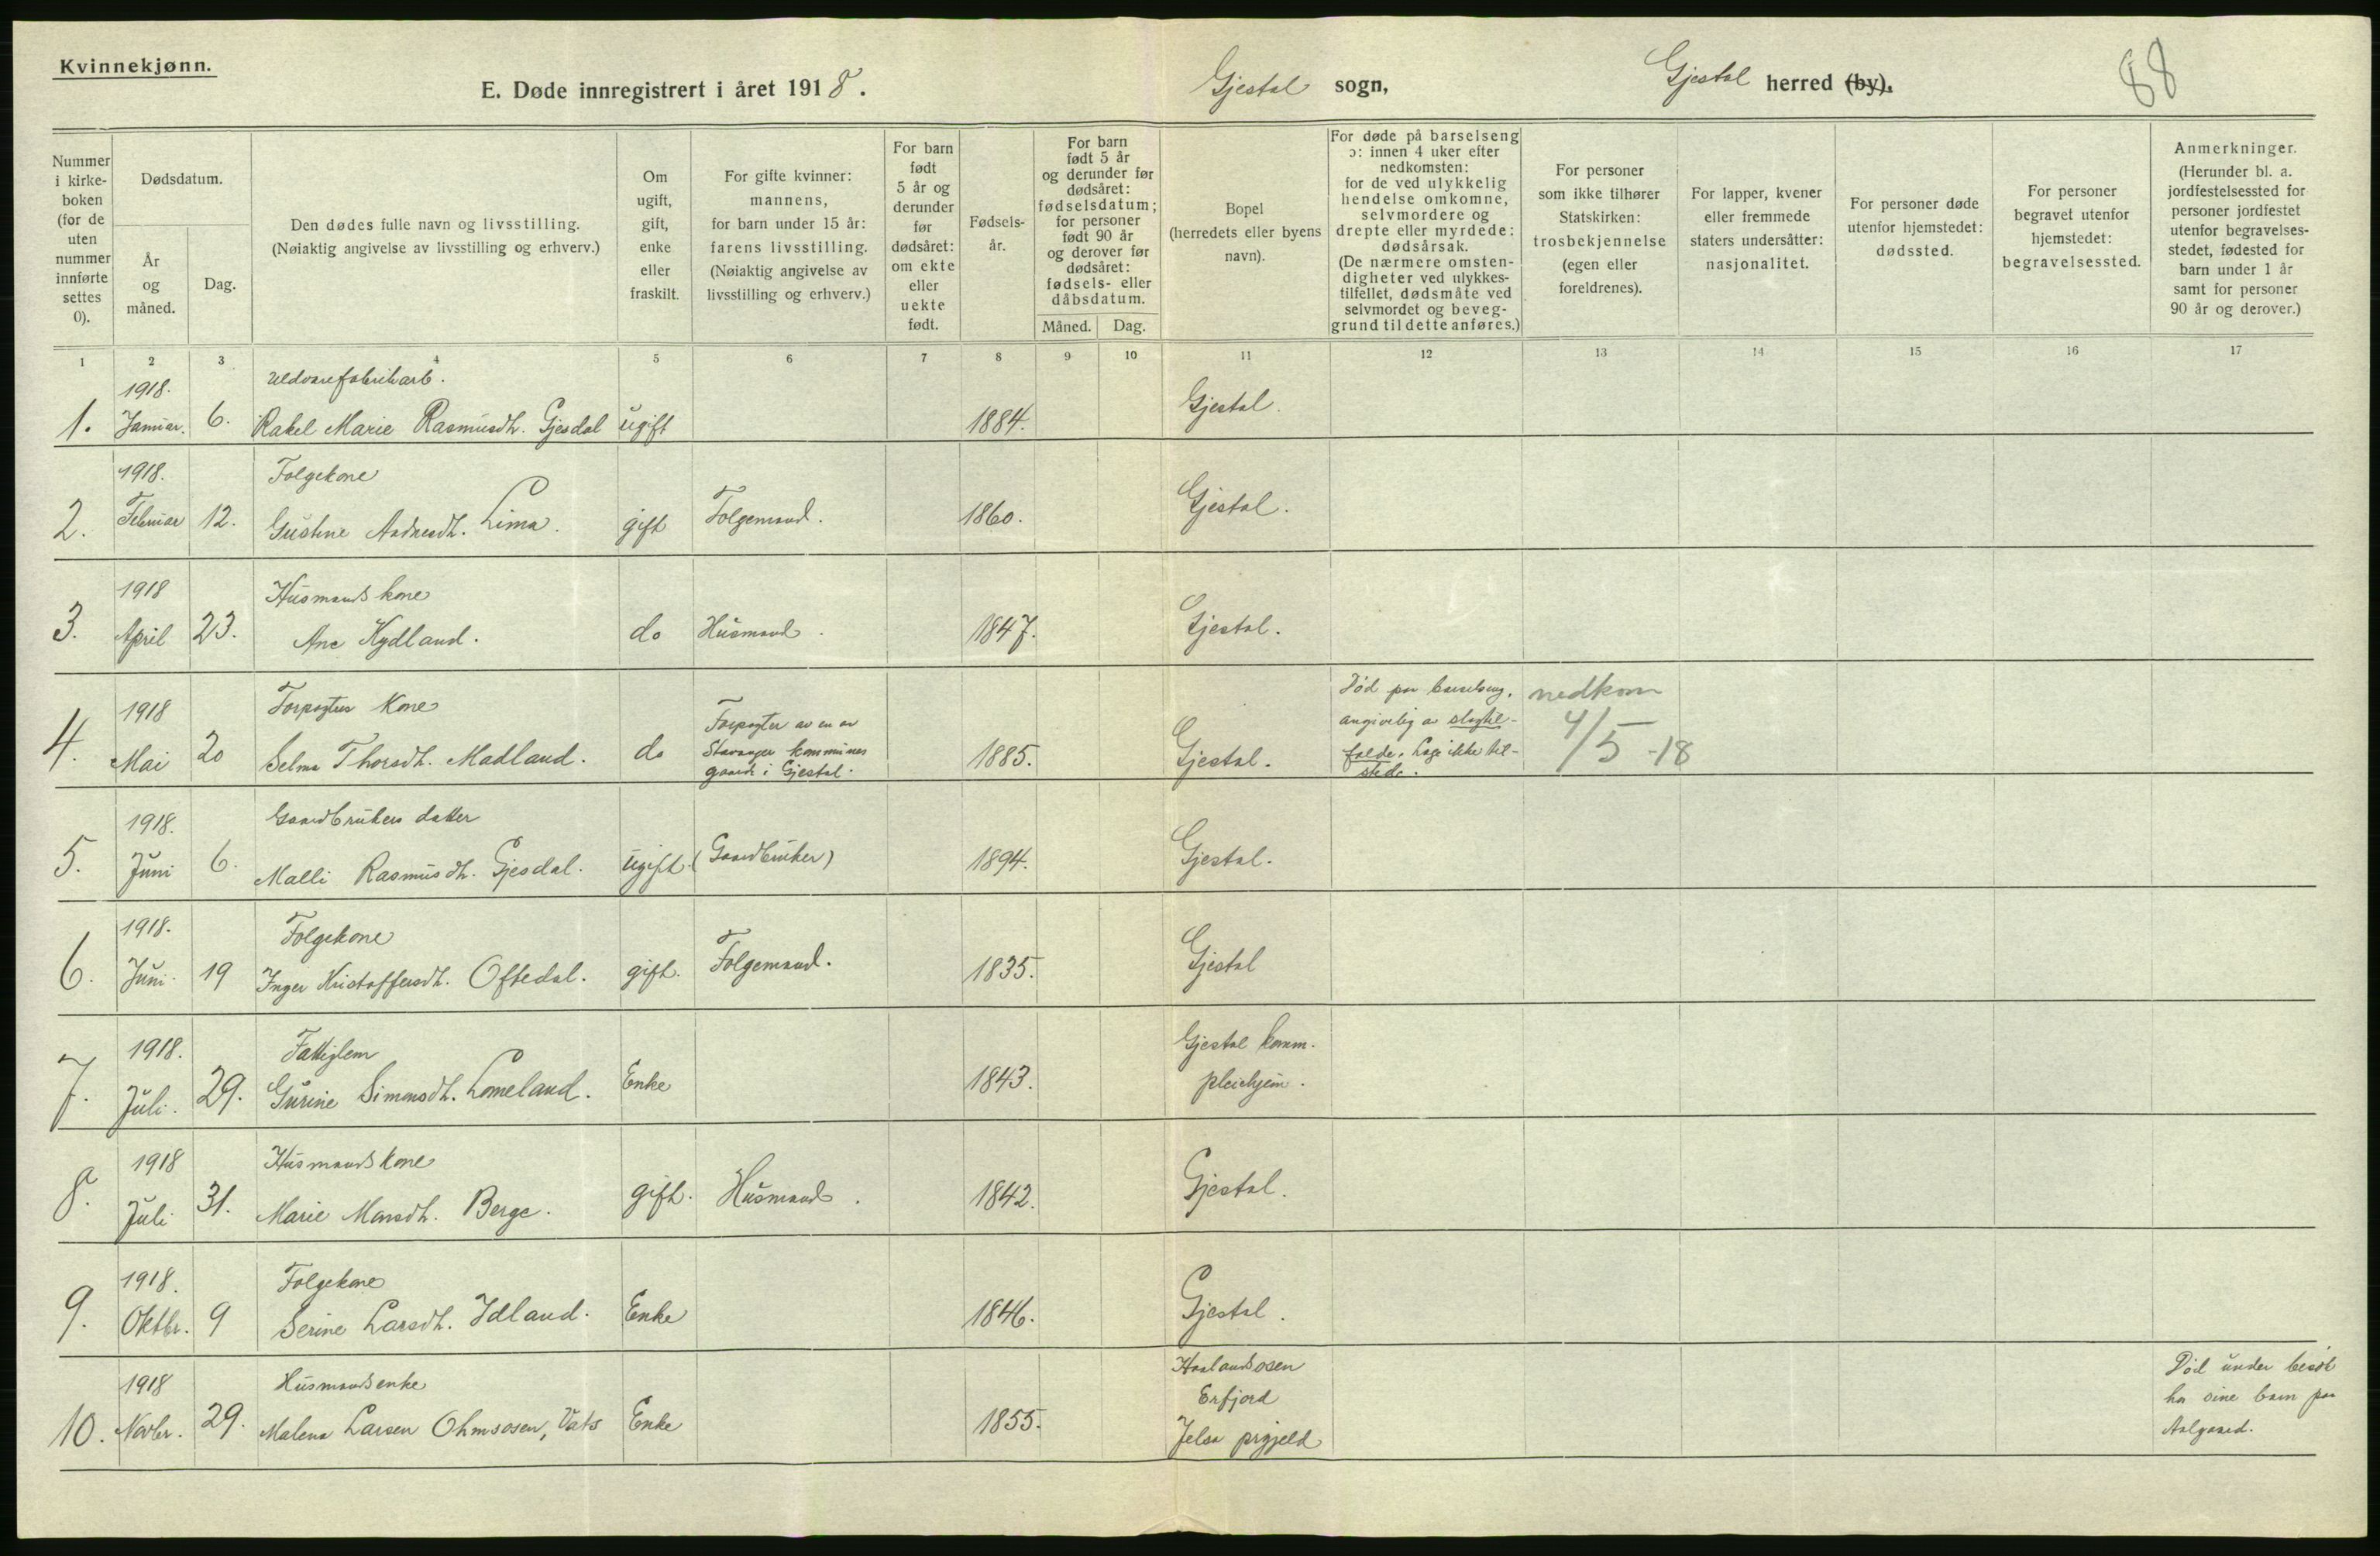 Kvinnekjønn.
E. Døde innregistrert i året 1918.
Gjestal sogn,
Gjestal herred (by).
88
Nummer i kirkeboken (for de uten nummer innførte settes 0).
Dødsdatum.
År og måned.
Dag.
Den dødes fulle navn og livsstilling.
(Nøiaktig angivelse av livsstilling og erhverv.)
Om ugift, gift, enke eller fraskilt.
For gifte kvinner: mannens, for barn under 15 år: farens livsstilling.
(Nøiaktig angivelse av livsstilling og erhverv.)
For barn født 5 år og derunder før dødsåret: om ekte eller uekte født.
Fødselsår.
For barn født 5 år og derunder før dødsåret: fødselsdatum; for personer født 90 år og derover før dødsåret: fødsels- eller dåbsdatum.
Måned. Dag.
Bopel (herredets eller byens navn).
For døde på barselseng ɔ: innen 4 uker efter nedkomsten: for de ved ulykkelig hendelse omkomne, selvmordere og drepte eller myrdede: dødsårsak.
(De nærmere omstendigheter ved ulykkestilfellet, dødsmåte ved selvmordet og beveggrund til dette anføres.)
For personer som ikke tilhører Statskirken: trosbekjennelse (egen eller foreldrenes).
For lapper, kvener eller fremmede staters undersåtter: nasjonalitet.
For personer døde utenfor hjemstedet: dødssted.
For personer begravet utenfor hjemstedet: begravelsessted.
Anmerkninger.
(Herunder bl. a. jordfestelsessted for personer jordfestet utenfor begravelsesstedet, fødested for barn under 1 år samt for personer 90 år og derover.)
1 2 3 4 5 6 7 8 9 10 11 12 13 14 15 16 17
1918. Uldvarefabrikarb.
1. Januar. 6. Rakel Marie Rasmusdh. Gjesdal ugift 1884. Gjestal.
1918. Folgekone
2. Februar 12. Gustine Andreasdh. Lima. gift Folgemand. 1860. Gjestal.
1918 Husmands kone
3. April 23. Ane Kydland. do Husmand. 1847. Gjestal.
1918 Forpagters Kone
4. Mai 20 Selma Thorsdh. Madland. do
Forpagter av en av
Stavanger kommunes
gaarde i Gjestal.
1885. Gjestal.
Død paa barselseng,
angivelig av slagtil-
fælde. Læge ikke til-
stede.
nedkom
4/5 -18
1918. Gaardbrukers datter
5. Juni 6. Malli Rasmusdh. Gjesdal. ugift. (Gaardbruker) 1894. Gjestal.
1918. Folgekone
6. Juni. 19 Inger Kristoffersdh. Oftedal. gift. Folgemand. 1835. Gjestal
1918. Fattiglem
7. Juli. 29. Gurine Simonsdh. Lomeland. Enke 1843.
Gjestal komm.
pleiehjem.
1918 Husmands kone
8. Juli 31. Marie Monsdh. Berge. gift. Husmand. 1842. Gjestal.
1918. Folgekone
9. Oktbr. 9 Serine Larsdh. Idland. Enke 1846. Gjestal.
1918 Husmandsenke
10. Novbr. 29. Malena Larsen Ohmsosen, Vats Enke 1855.
Haalandsosen
Erfjord
Jelsa prgjeld
Død under besøk
hos sine barn paa
Aalgaard.